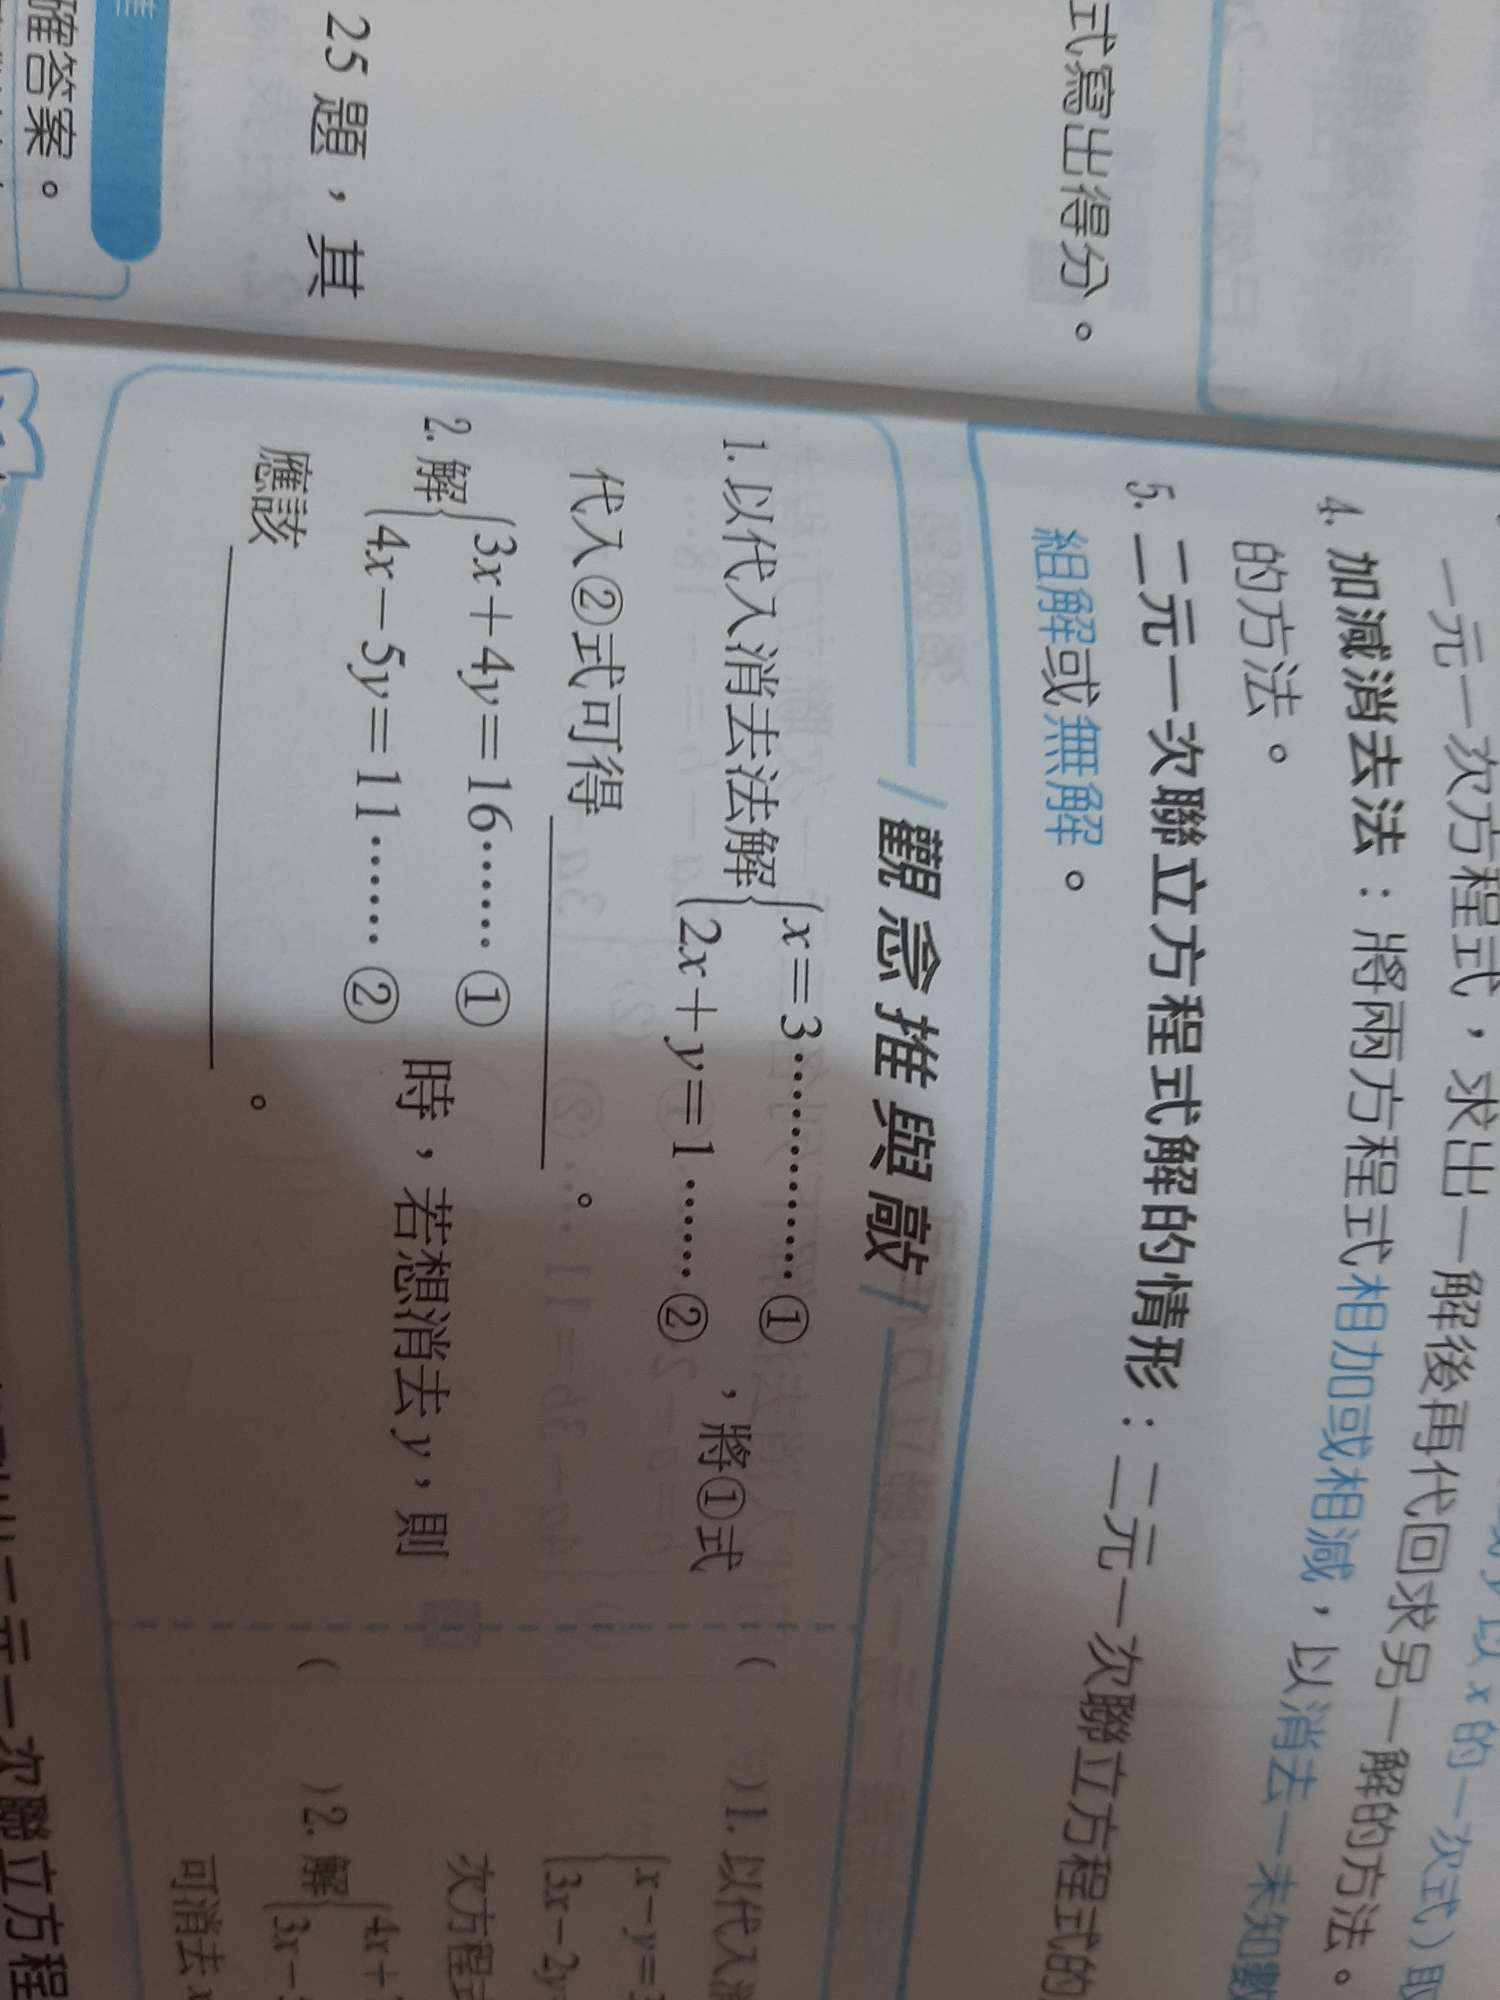 確答案。
25 題，其
式寫出得分。
一元一次方程式，求出一解後再代回求另一解的方法。
以 x 的一次式）取
4. 加減消去法：將兩方程式相加或相減，以消去一未知數
的方法。
5. 二元一次聯立方程式解的情形：二元一次聯立方程式的
組解或無解。
觀念推與敲
1. 以代入消去法解{x=3……………①
2x+y=1………②，將①式
代入②式可得＿＿＿＿＿＿。
2. 解{3x+4y=16……①
4x－5y=11……②時，若想消去y，則
應該＿＿＿＿＿＿＿＿。
( )1. 以代入消
{x－y=
3x－2y
次方程
( )2. 解{4x+
3x－
可消去 x
二元一次聯立方程